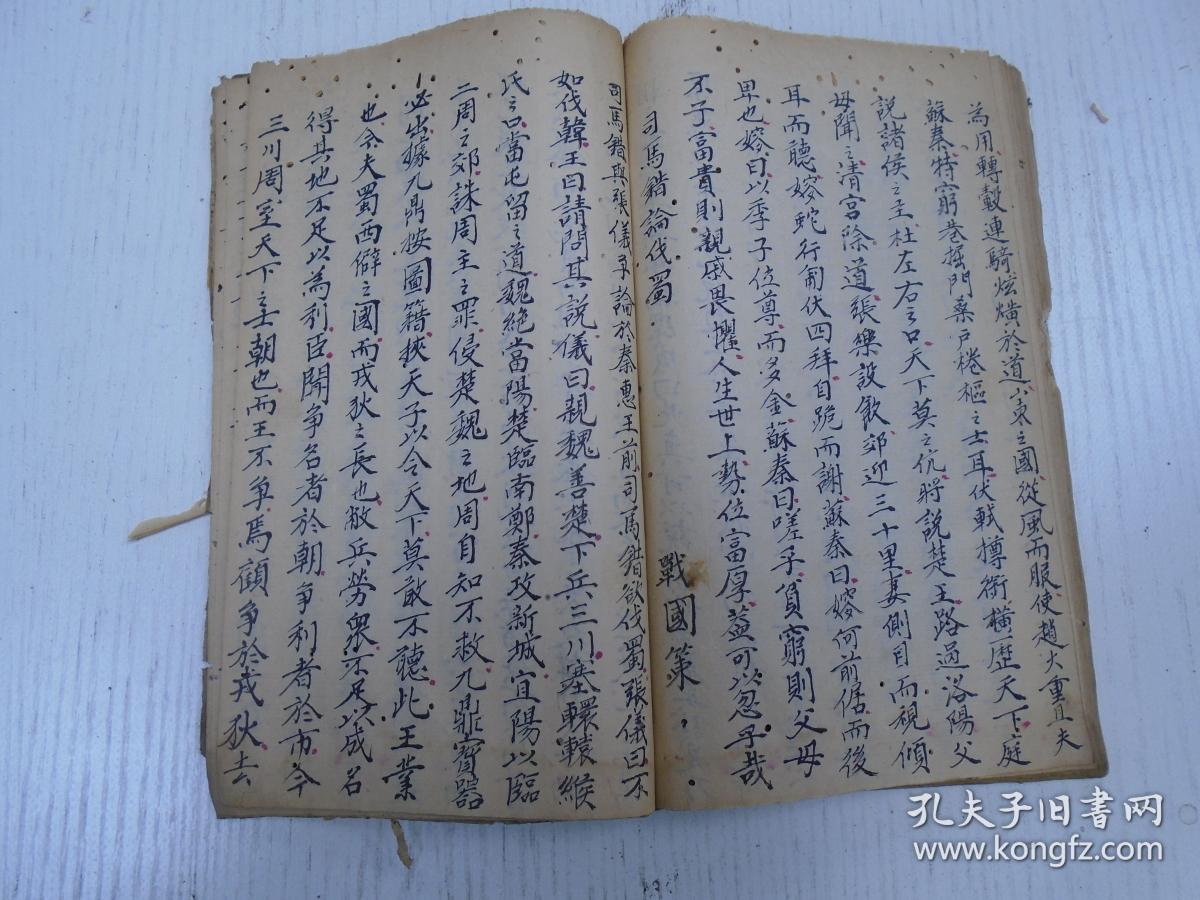 為用轉轂連騎炫熿於道山東之國從風而服使趙大重且夫
蘇秦特窮巷掘門桑戶棬樞之士耳伏軾撙銜橫歷天下庭
說諸侯之主杜左右之口天下莫之伉將說楚王路過洛陽父
母聞之清宮除道張樂設飲郊迎三十里妻側目而視傾
耳而聽嫂蛇行匍伏四拜自跪而謝蘇秦曰嫂何前倨而後
卑也嫂曰以季子位尊而多金蘇秦曰嗟乎貧窮則父母
不子富貴則親戚畏懼人生世上勢位富厚蓋可以忽乎哉
司馬錯論伐蜀 戰國策
司馬錯與張儀爭論於秦惠王前司馬錯欲伐蜀張儀曰不
如伐韓王曰請問其說儀曰親魏善楚下兵三川塞轘轅緱
氏之口當屯留之道魏絕當陽楚臨南鄭秦攻新城宜陽以臨
二周之郊誅周主之罪侵楚魏之地周自知不救九鼎寶器
必出據九鼎按圖籍挾天子以令天下莫敢不聽此王業
也今夫蜀西僻之國而戎狄之長也敝兵勞眾不足以成名
得其地不足以為利臣聞爭名者於朝爭利者於市今
三川周室天下之士朝也而王不爭焉顧爭於戎狄去
孔夫子旧书网
www.kongfz.com